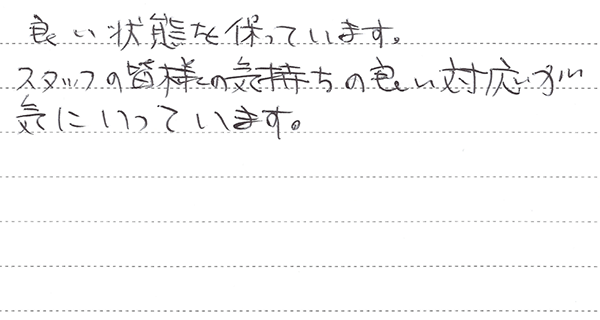 良い状態を保っています。
スタッフの皆様の気持ちの良い対応が
気にいっています。